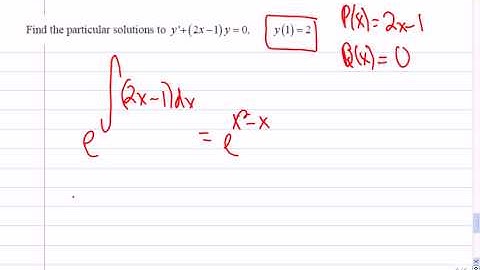 Find the particular solutions to y'+(2x−1)y=0, y(1)=2
P(x)=2x-1
Q(x)=0
e^∫(2x-1)dx = e^x²-x